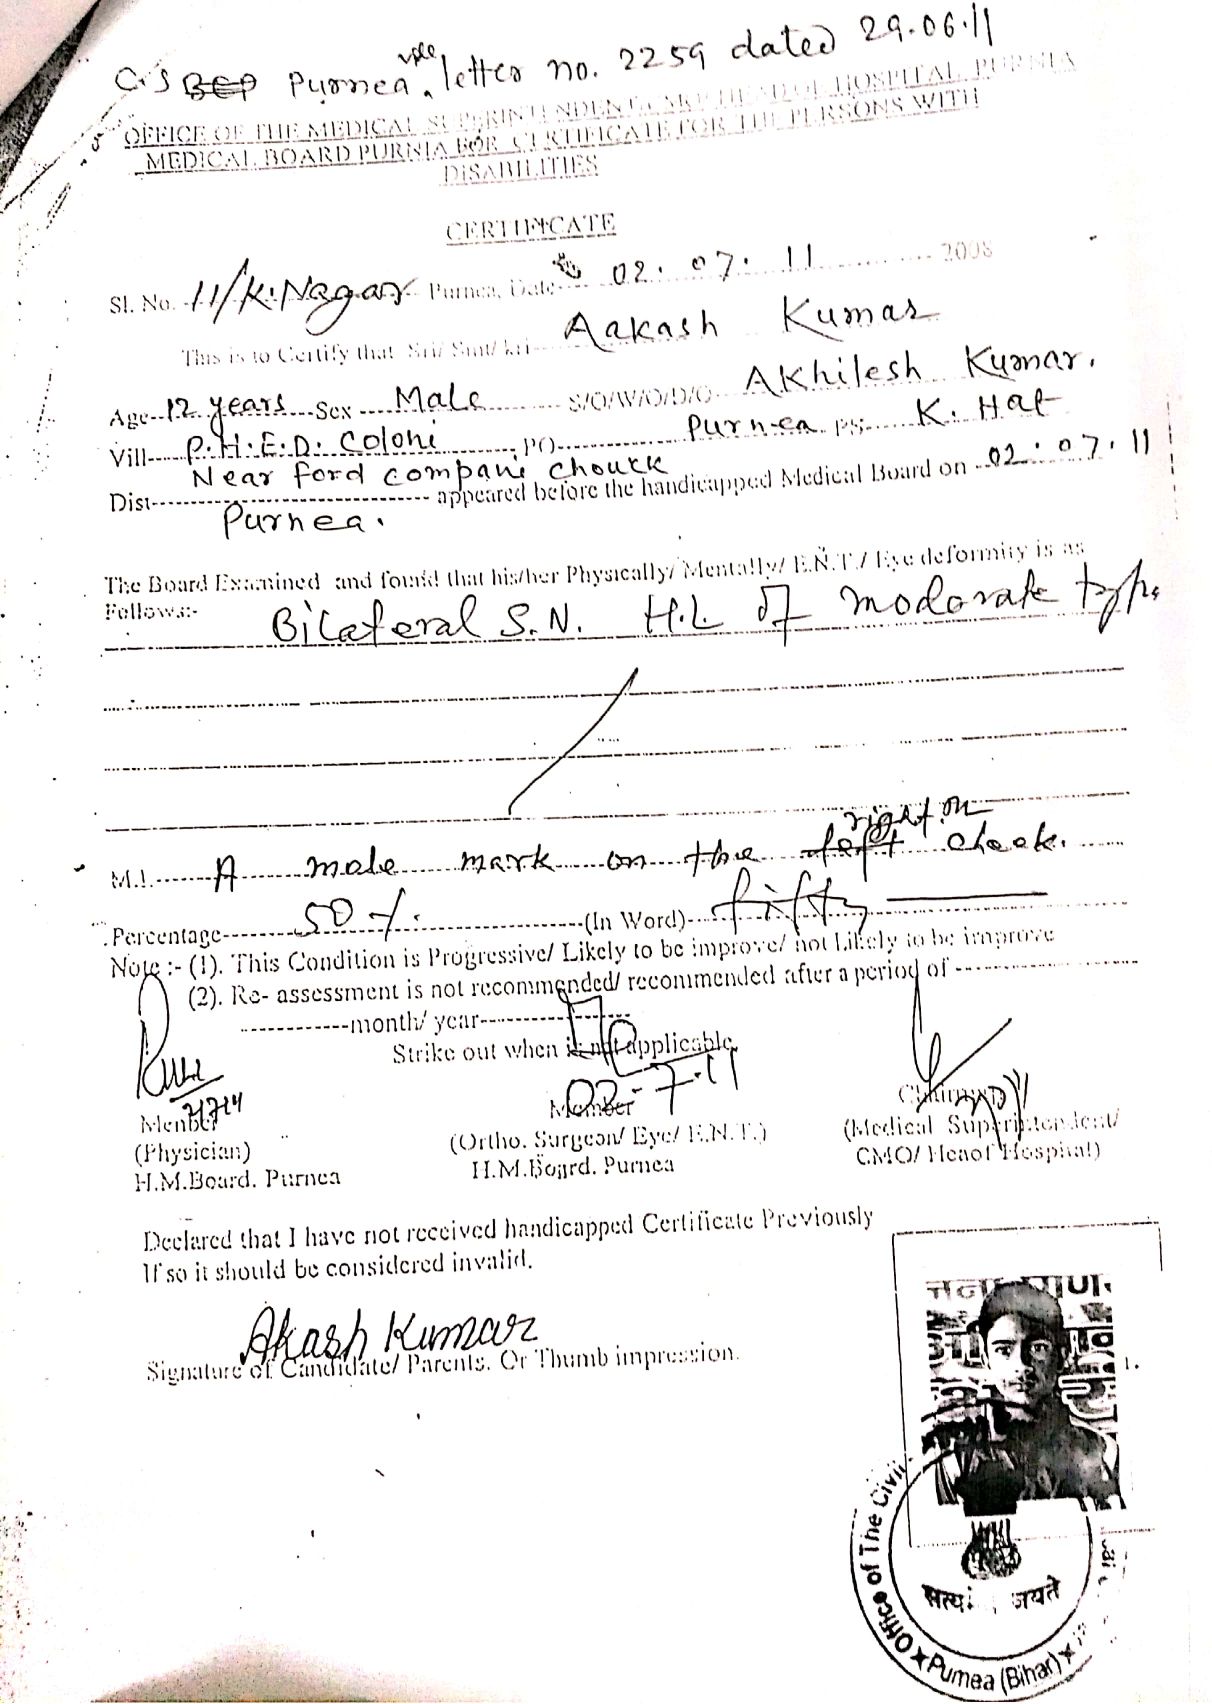 C.S BEP Purnea vide letter no. 2259 dated 29.06.11
OFFICE OF THE MEDICAL SUPERINTENDENT HOSPITAL, PURNIA
MEDICAL BOARD PURNIA FOR CERTIFICATE FOR THE PERSONS WITH
DISABILITIES
CERTIFICATE
Sl. No. 11/K.Nagar Purnea, Date 02.07.11 2008
This is to Certify that Sri/ Smt/ kri Aakash Kumar
Age 12 years Sex Male S/O/W/O/D/O AKhilesh Kumar.
Vill P.H.E.D. Coloni PO Purnea PS K. Hat
Near ford compani chouck
Dist appeared before the handicapped Medical Board on 02.07.11
Purnea.
The Board Examined and found that his/her Physically/ Mentally/ E.N.T./ Eye deformity is as
Follows:-
Bilateral S.N. H.L of moderate type
right on
M.I. A mole mark on the left cheek.
Percentage 50 /. (In Word) fifty
Note :- (1). This Condition is Progressive/ Likely to be improve/ not Likely to be improve
(2). Re- assessment is not recommended/ recommended after a period of
month/ year
Strike out when is not applicable.
02-7-11
Member Member Chairman
(Physician) (Ortho. Surgeon/ Eye/ E.N.T.) (Medical Superintendent/
H.M.Board. Purnea H.M.Board. Purnea CMO/ Hospital)
Declared that I have not received handicapped Certificate Previously
If so it should be considered invalid.
Akash Kumar
Signature of Candidate/ Parents. Or Thumb impression.
Office of The Civil
सत्य जयते
Purnea (Bihar)